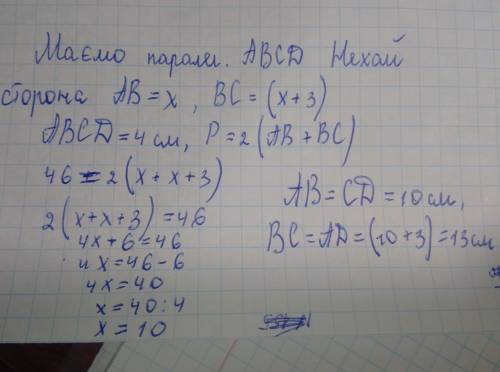 Маємо паралел. ABCD Нехай
сторона AB = x, BC = (x + 3)
ABCD = 4 см, P = 2(AB + BC)
46 = 2(x + x + 3)
2(x + x + 3) = 46
4x + 6 = 46
4x = 46 - 6
4x = 40
x = 40 : 4
x = 10
AB = CD = 10 см,
BC = AD = (10 + 3) = 13 см